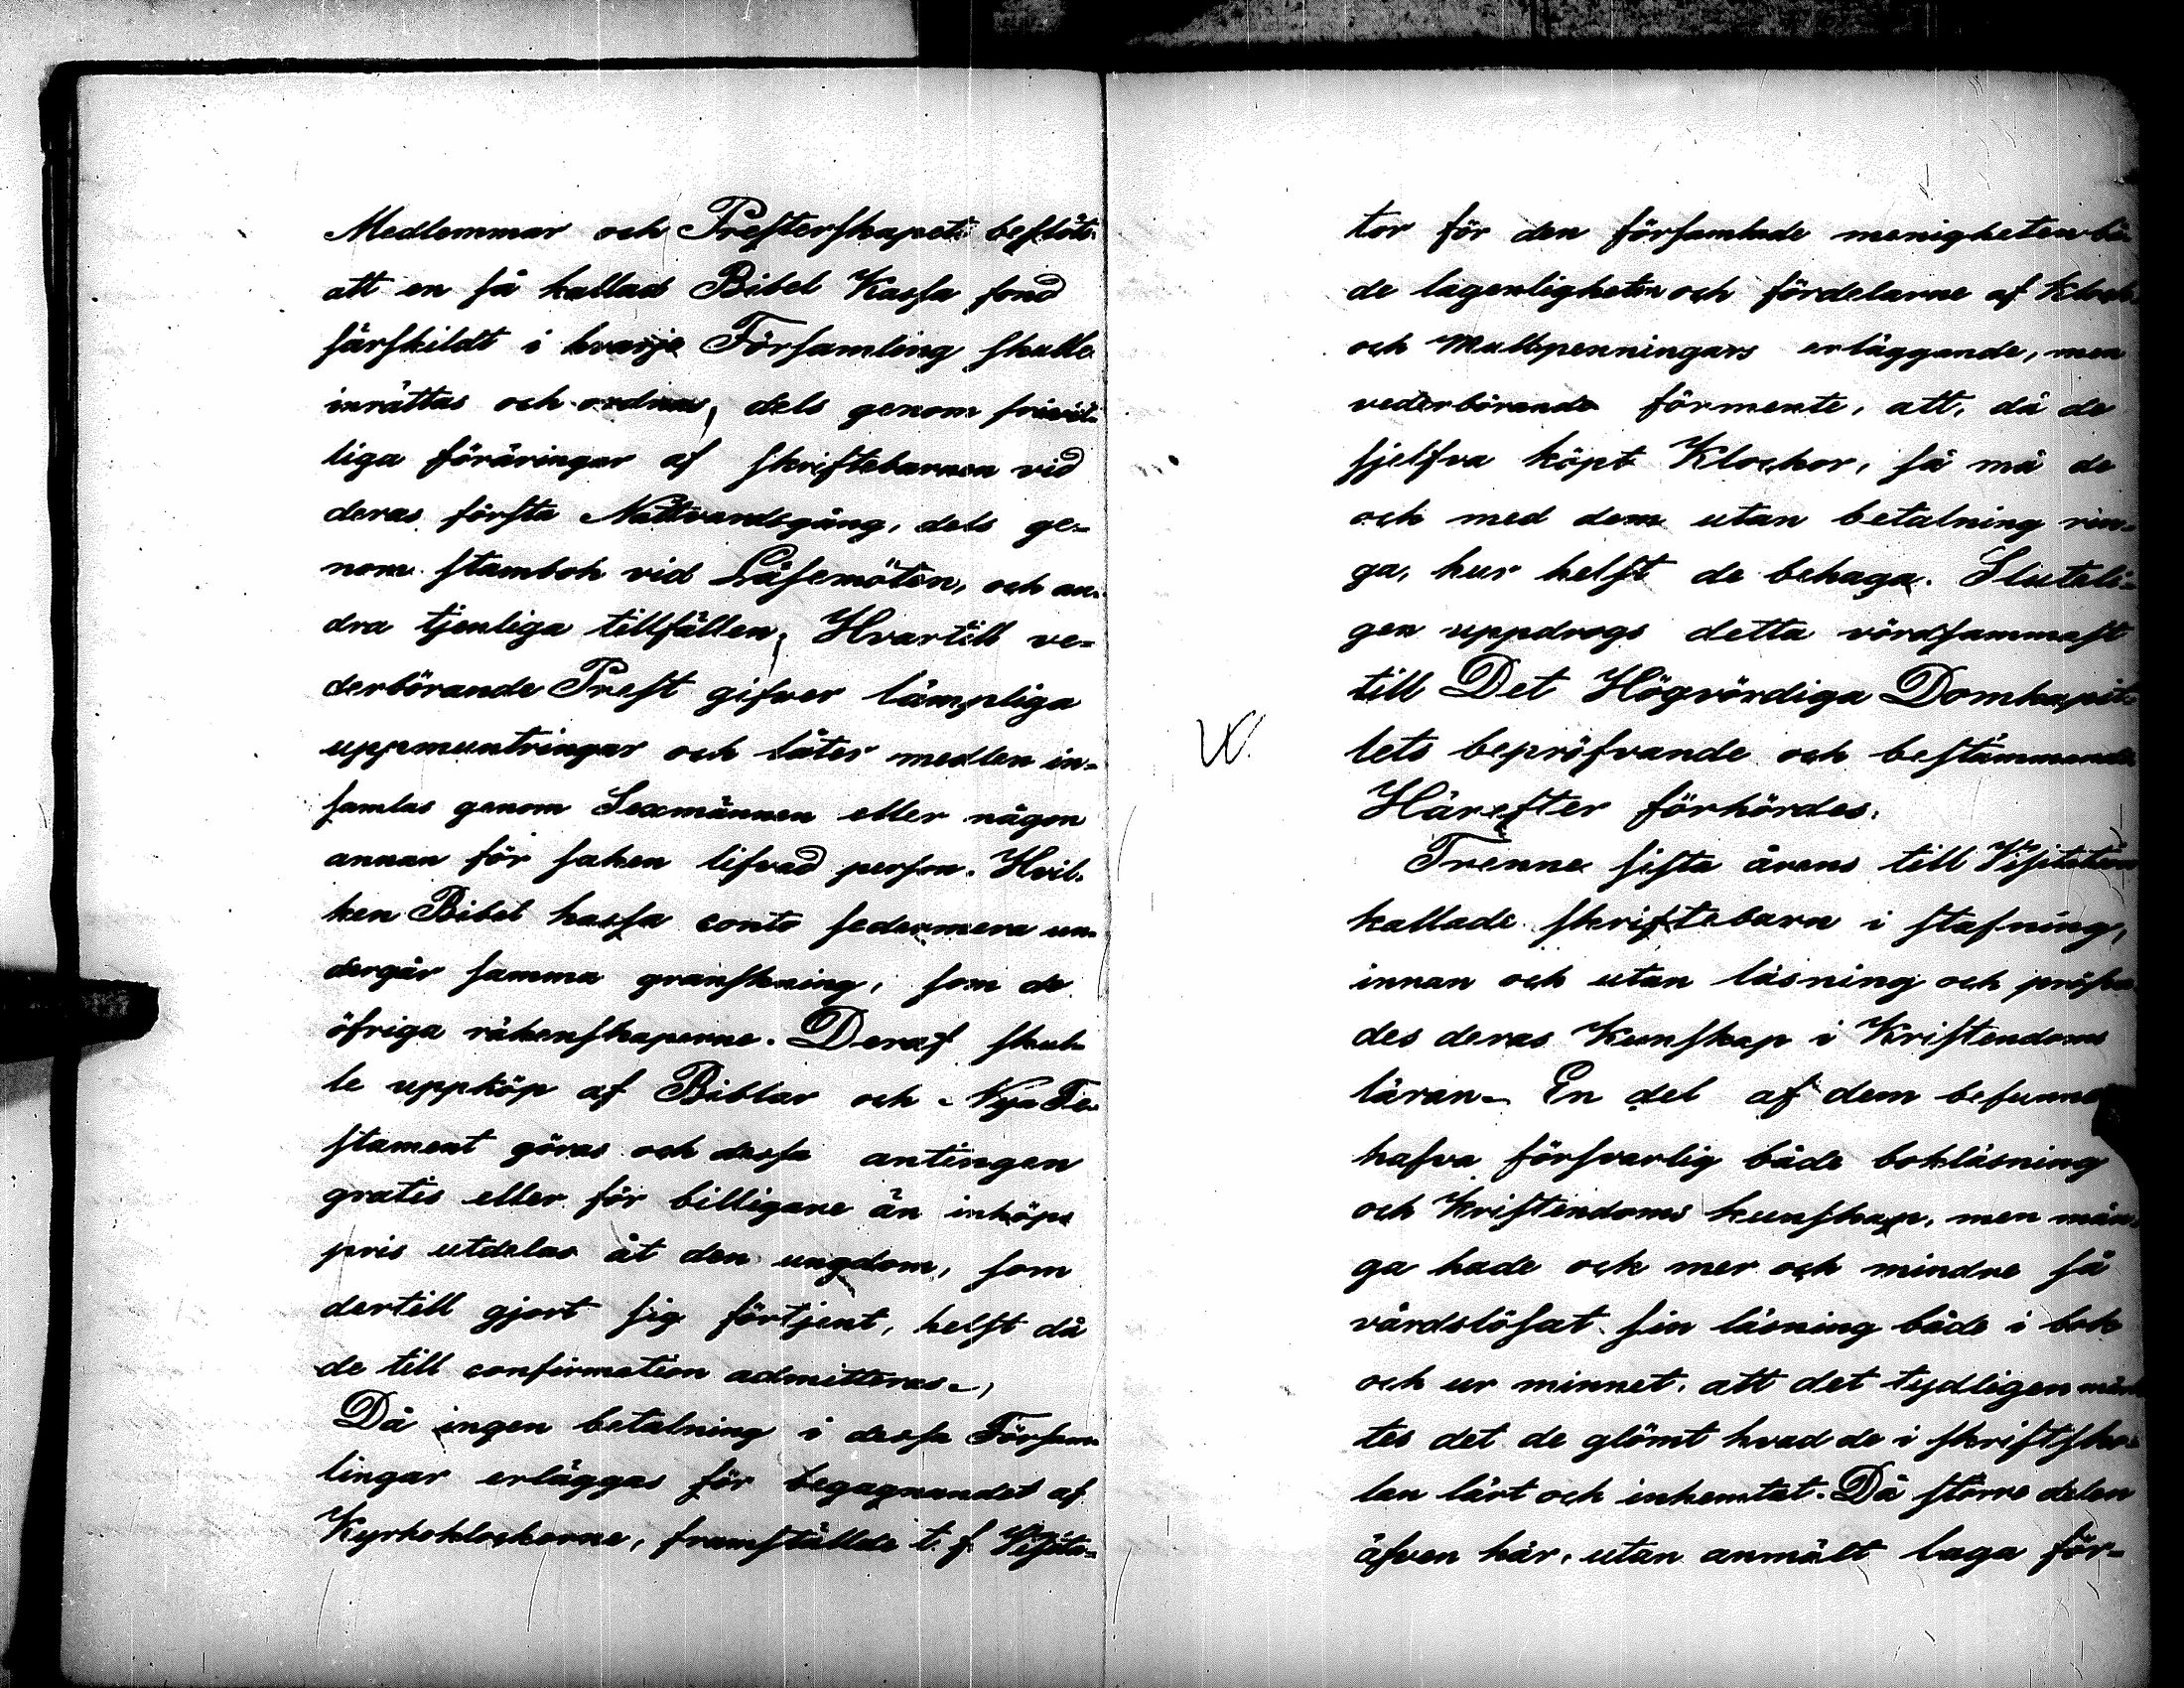 Medlemmar och Presterskapet: beslöts
att en så kallad Bibel Kassa fond
särskildt i hvarje Församling skulle
inrättas och ordnas, dels genom frivil-
liga föräringar af skriftebarnen vid
deras första Nattvardsgång, dels ge-
nom stambok vid Läsemöten, och an-
dra tjenliga tillfällen, Hvartill ve-
derbörande Prest gifver lämpliga
uppmuntringar och låter medlen in-
samlas genom Sexmännen eller någon
annan för saken lifvad person. Hvil-
ken Bibel kassa conto sedermera un-
dergår samma granskning, som de
öfriga räkenskaperne. Deraf skul-
le uppköp af Biblar och Nya Te-
stament göras och dessa antingen
gratis eller för billigare än inköps
pris utdelas åt den ungdom, som
dertill gjort sig förtjent, helst då
de till confirmation admitteras.,
Då ingen betalning i dessa Försam-
lingar erlägges för begagnandet af
Kyrkoklockorne, framstälde t. f. Visita-
tor för den församlade menigheten bå-
de lagenligheten och fördelarne af Klock
och Mullpenningars erläggande, men
vederbörande förmente, att, då de
sjelfva köpt Klockor, så må de
och med dem utan betalning rin-
ga, hur helst de behaga. Slutli-
gen uppdrogs detta vördsammast
till Det Högvördiga Domkapit-
lets bepröfvande och bestämmande
Härefter förhördes:
Trenne sista årens till Visitation
kallade skriftebarn i stafning,
innan och utan läsning och pröfva-
des deras Kunskap i Kristendoms
läran. En del af dem befunnos
hafva försvarlig både bokläsning
och Kristendoms kunskap, men mån-
ga hade ock mer och mindre så
vårdslösat sin läsning både i bok
och ur minnet, att det tydligen märk
tes det de glömt hvad de i skriftsko-
lan lärt och inhemtat. Då större delen
äfven här, utan anmält laga för-